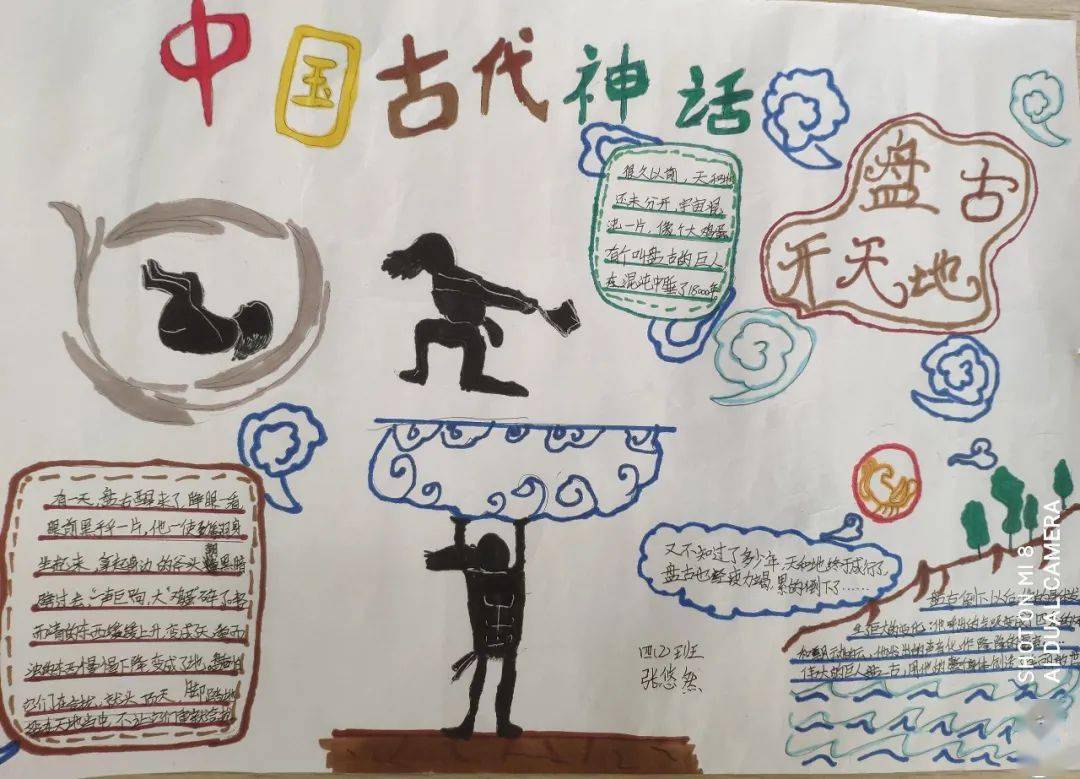 中国古代神话
盘古
开天地
很久以前，天和地
还未分开，宇宙混
沌一片，像个大鸡蛋
有个叫盘古的巨人，
在混沌中睡了18000年
有一天，盘古醒来了睁眼一看
眼前黑乎乎一片，他一使
坐起来，拿起身边的斧头朝黑暗
劈过去，一声巨响，大"鸡蛋"碎了
而清的东西缓缓上升，变成天，
浊的东西慢慢下降变成了地
它们在合拢，就头顶天，脚踏地
站在天地当中，不让它们
又不知过了多少年，天和地终于成行了，
盘古也疲力竭，累的倒下了……
盘古倒下以后
巨大的变化，他呼出的气息变成了
他发出的声音化作隆隆的雷声
伟大的巨人盘古，用他的整个身体创造了
四(2)班
张悠然
SHOT ON MI 8
AI DUAL CAMERA